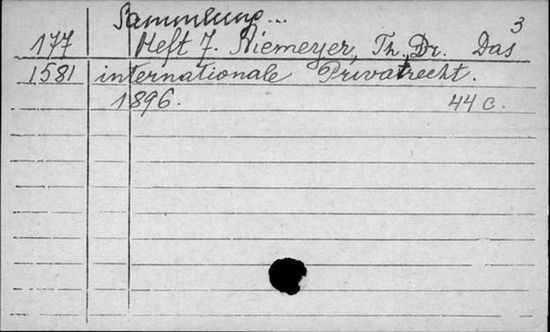 Sammlung...
3
177 Heft 7. Niemeyer, Th. Dr. Das
1581 internationale Privatrecht.
1896. 44 c.